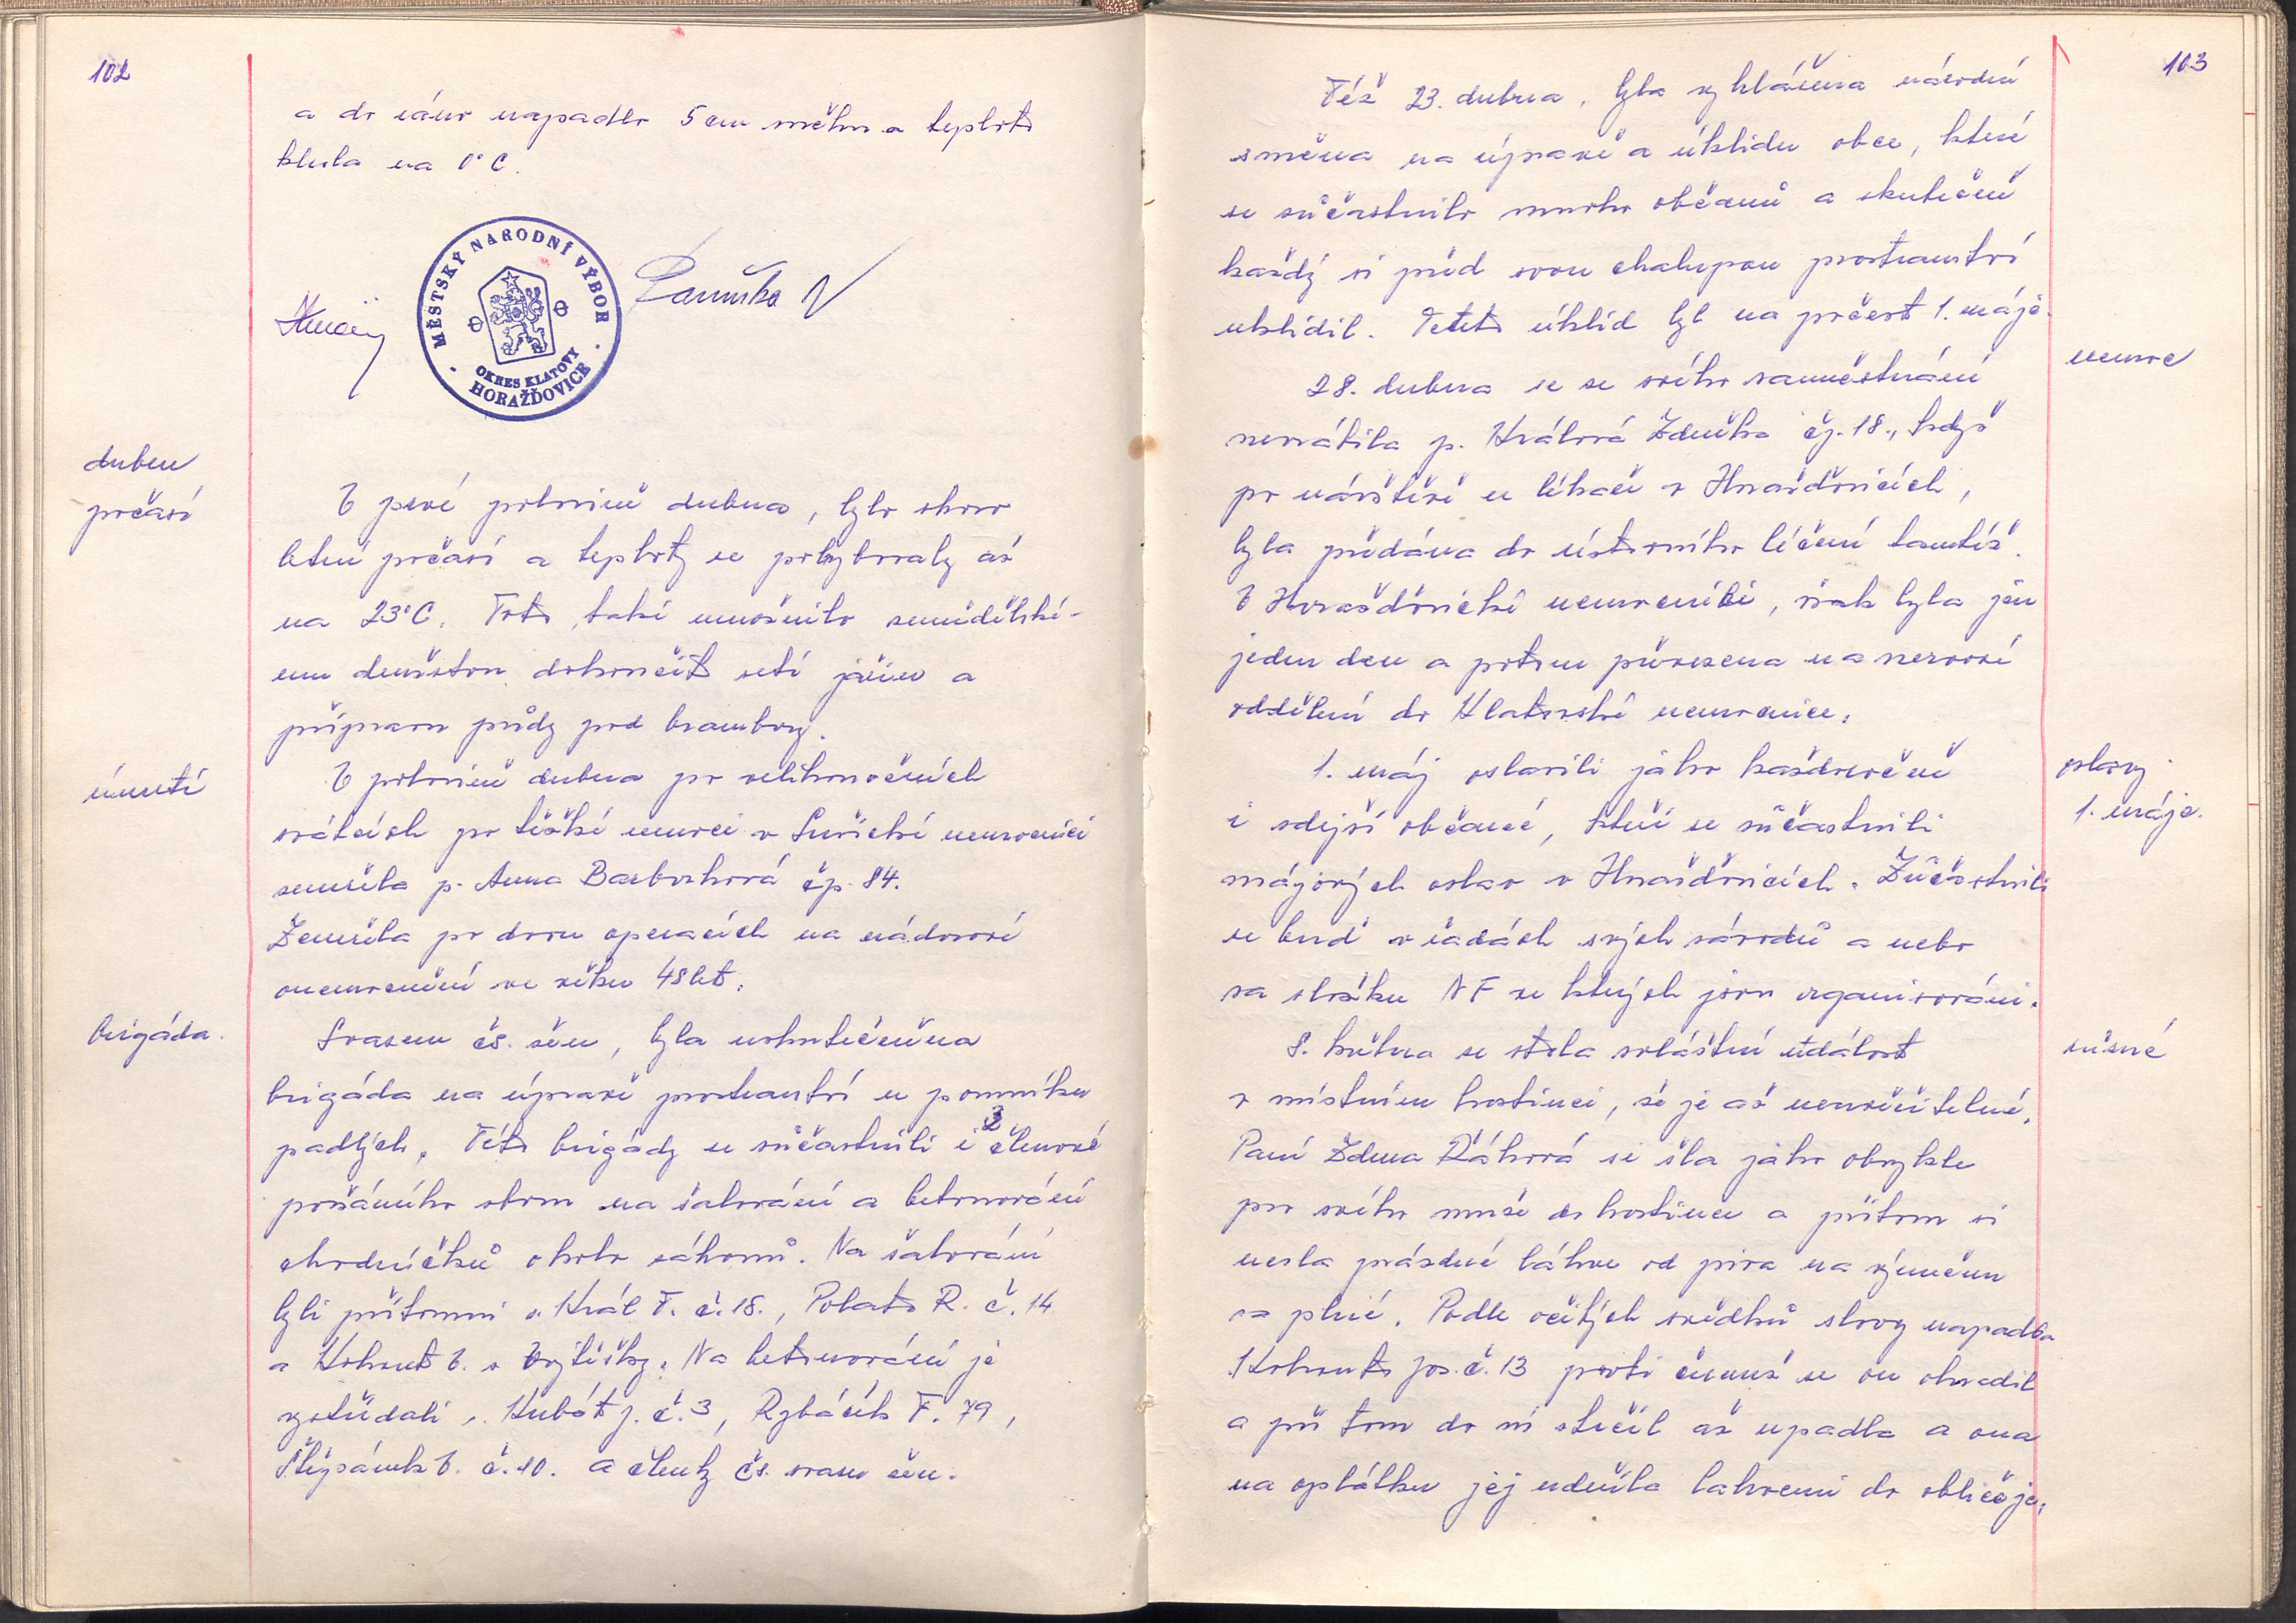 102
a do rána napadlo 5 cm sněhu a teplota
klesla na 0° C.
MĚSTSKÝ NÁRODNÍ VÝBOR
OKRES KLATOVY
HORAŽĎOVICE
duben
počasí
V prvé polovině dubna, bylo skoro
letní počasí a teploty se pohybovaly až
na 23°C. Toto také umožnilo zemědělské-
mu družstvu dokončit setí jařin a
přípravu půdy pod brambory.
úmrtí
V polovině dubna po velikonočních
svátcích po těžké nemoci v Sušické nemocnici
zemřela p. Anna Barborková čp. 84.
Zemřela po dvou operacích na nádorové
onemocnění ve věku 48 let.
brigáda.
Svazem čs. žen, byla uskutečněna
brigáda na úpravě prostranství u pomníku
padlých. Této brigády se zůčastnili i 3 členové
požárního sboru na šalování a betonování
chodníčků okolo záhonů. Na šalování
byli přítomni s. Král F. č. 18., Polata R. č. 14
a Kohout V. z Vojtěšky. Na betonování je
vystřídali s. Kubát J. č. 3, Rybáček F. 79,
Štěpánek V. č. 10. a členky čs. svazu žen.
103
Též 23. dubna, byla vyhlášena národní
směna na úpravě a úklidu obce, které
se zůčastnilo mnoho občanů a skutečně
každý si před svou chalupou prostranství
uklidil. Tento úklid byl na počest 1. máje.
nemoc
28. dubna se ze svého zaměstnání
nevrátila p. Králová Zdeňka čp. 18., když
po návštěvě u lékaře v Horažďovicích,
byla předána do ústavního léčení tamtéž.
V Horažďovické nemocnici, však byla jen
jeden den a potom převezena na nervové
oddělení do Klatovské nemocnice.
oslavy
1. máje.
1. máj oslavili jako každoročně
i zdejší občané, kteří se zůčastnili
májových oslav v Horažďovicích. Zůčastnili
se buď v řadách svých závodů a nebo
za složku NF ve kterých jsou organisováni.
různé
8. května se stala zvláštní událost
v místním hostinci, že je až neuvěřitelné.
Paní Zdena Ráhová si šla jako obvykle
pro svého muže do hostince a přitom si
nesla prázdné láhve od piva na výměnu
za plné. Podle očitých svědků slovy napadla
Kohouta Jos. č. 13 proti čemuž se on ohradil
a při tom do ní strčil až upadla a ona
na oplátku jej udeřila lahvemi do obličeje,